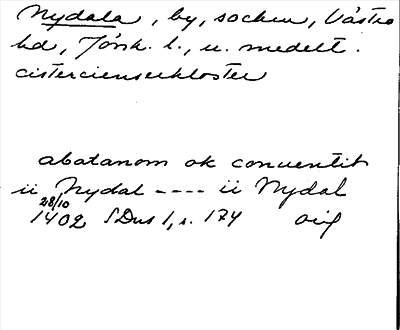 Nydala, by, socken, Västra
hd, Jönk. l., u. medelt.
cistercienserkloster
abatanom ok conventit
ii Nydal ---- ii Nydal
28/10
1402 SDns 1, s. 174 orig